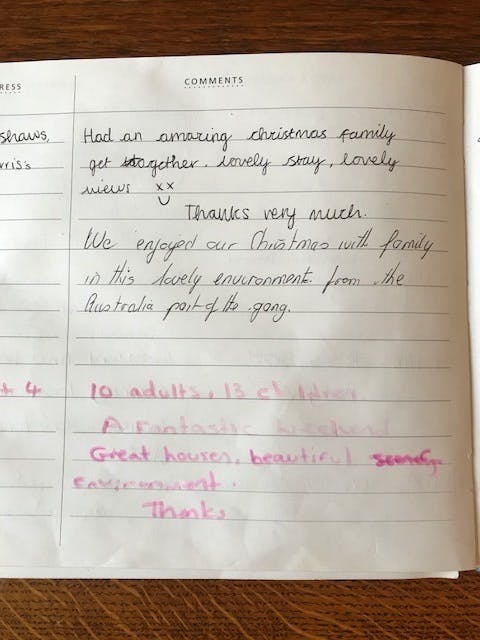 RESS
COMMENTS
shaws,
Had an amazing christmas family
rris's
get together. lovely stay, lovely
views xx
Thanks very much.
We enjoyed our Christmas with family
in this lovely environment. from the
Australia part of the gang.
+ 4
10 adults, 13 children
A Fantastic weekend
Great houses, beautiful
environment.
Thanks